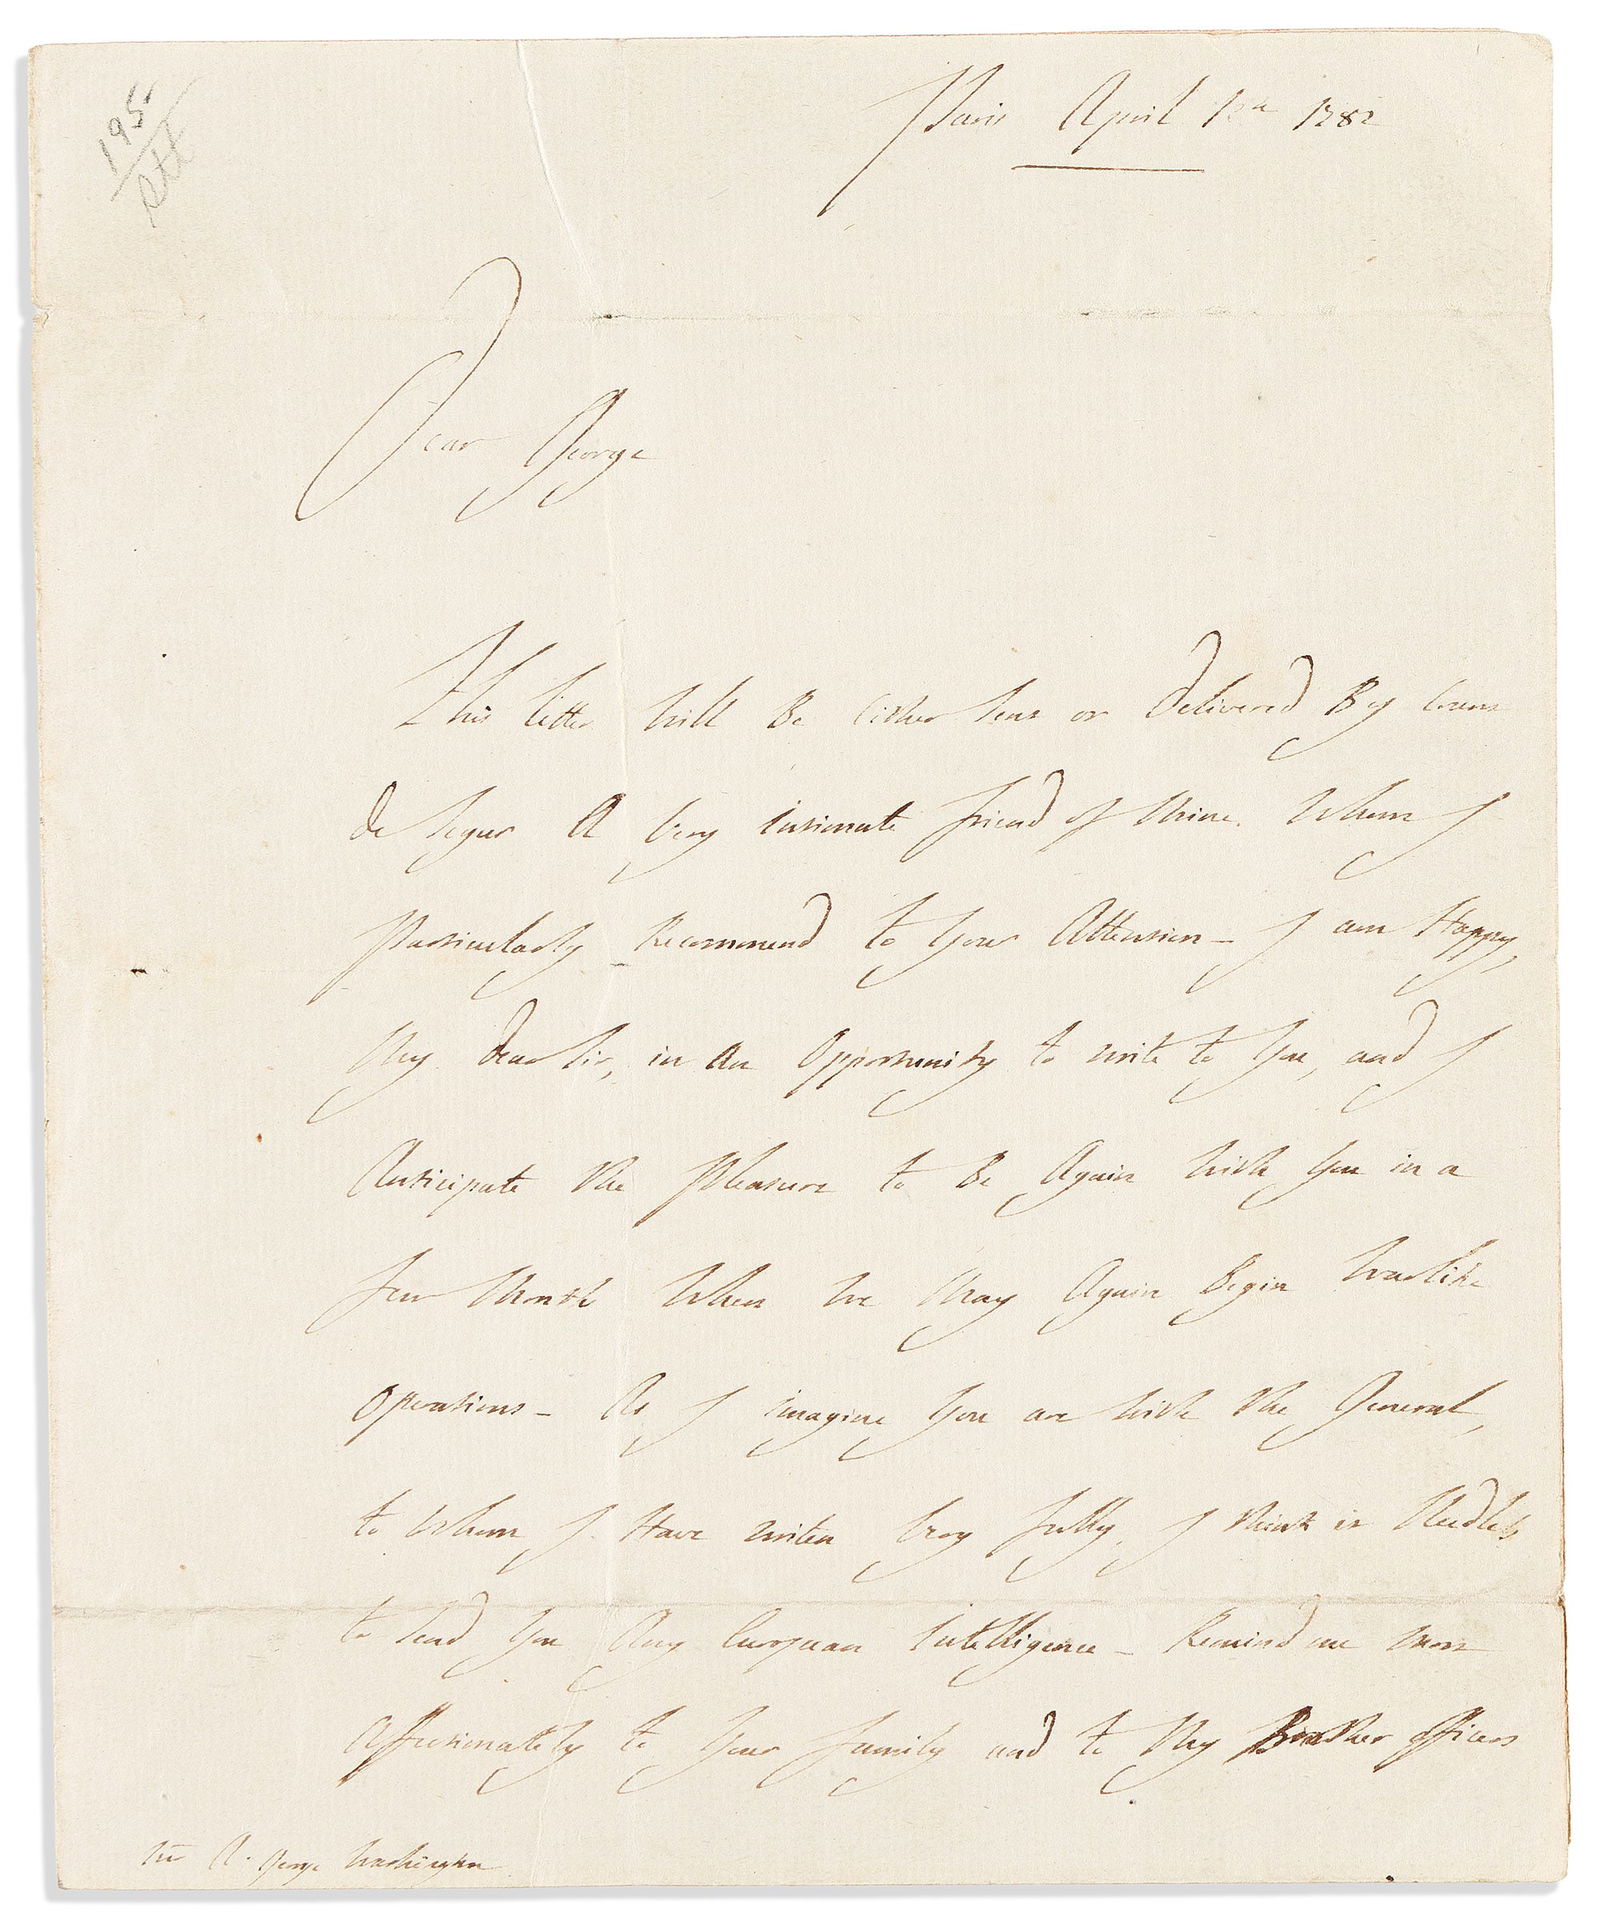 195
Paris April 12th 1782
Dear George
This letter will Be Either Sent or Delivered By Count
de Segur A Very intimate friend of Mine Whom I
Particularly Recommend to Your Attention - I am Happy,
My dear Sir, in An Opportunity to write to You, and I
Anticipate the Pleasure to Be Again With You in a
few Month When We May Again Begin Warlike
Operations - As I imagine You are With the General,
to Whom I Have writen Very fully, I think it Needless
to Send You Any European Intelligence - Remind me most
Affectionately to Your family and to My Brother officers
George Washington